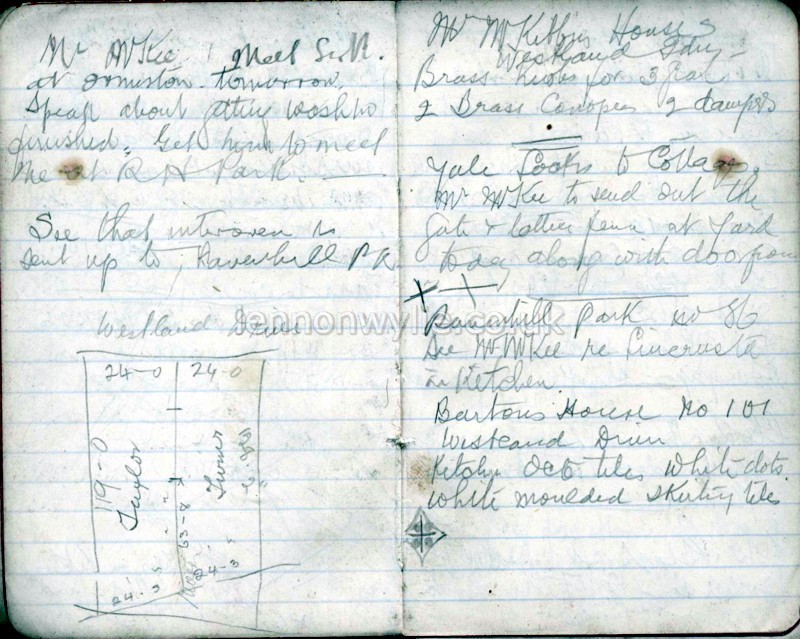 Mr McKee Meet Scott
at Ormiston tomorrow.
Speak about getting
finished. Get him to meet
me at R H Park.
See that interwoven is
sent up to Ravenhill Pk
Westland Drive
24-0 24-0
119-0
Taylor
Turner
63-8
24-3 24-3
Mr McKibbin House
Westland
Brass for 3
2 Brass Canopies 2 dampers
Yale Locks to Cottage.
Mr McKee to send out the
gate & at Yard
today along with
X X
Ravenhill Park No 86
See Mr McKee re Lincrusta
in Kitchen
Bartons House No 101
Westland Drive
Kitchen Octo tiles white dots
white moulded skirting tiles
lennonwylie.co.uk